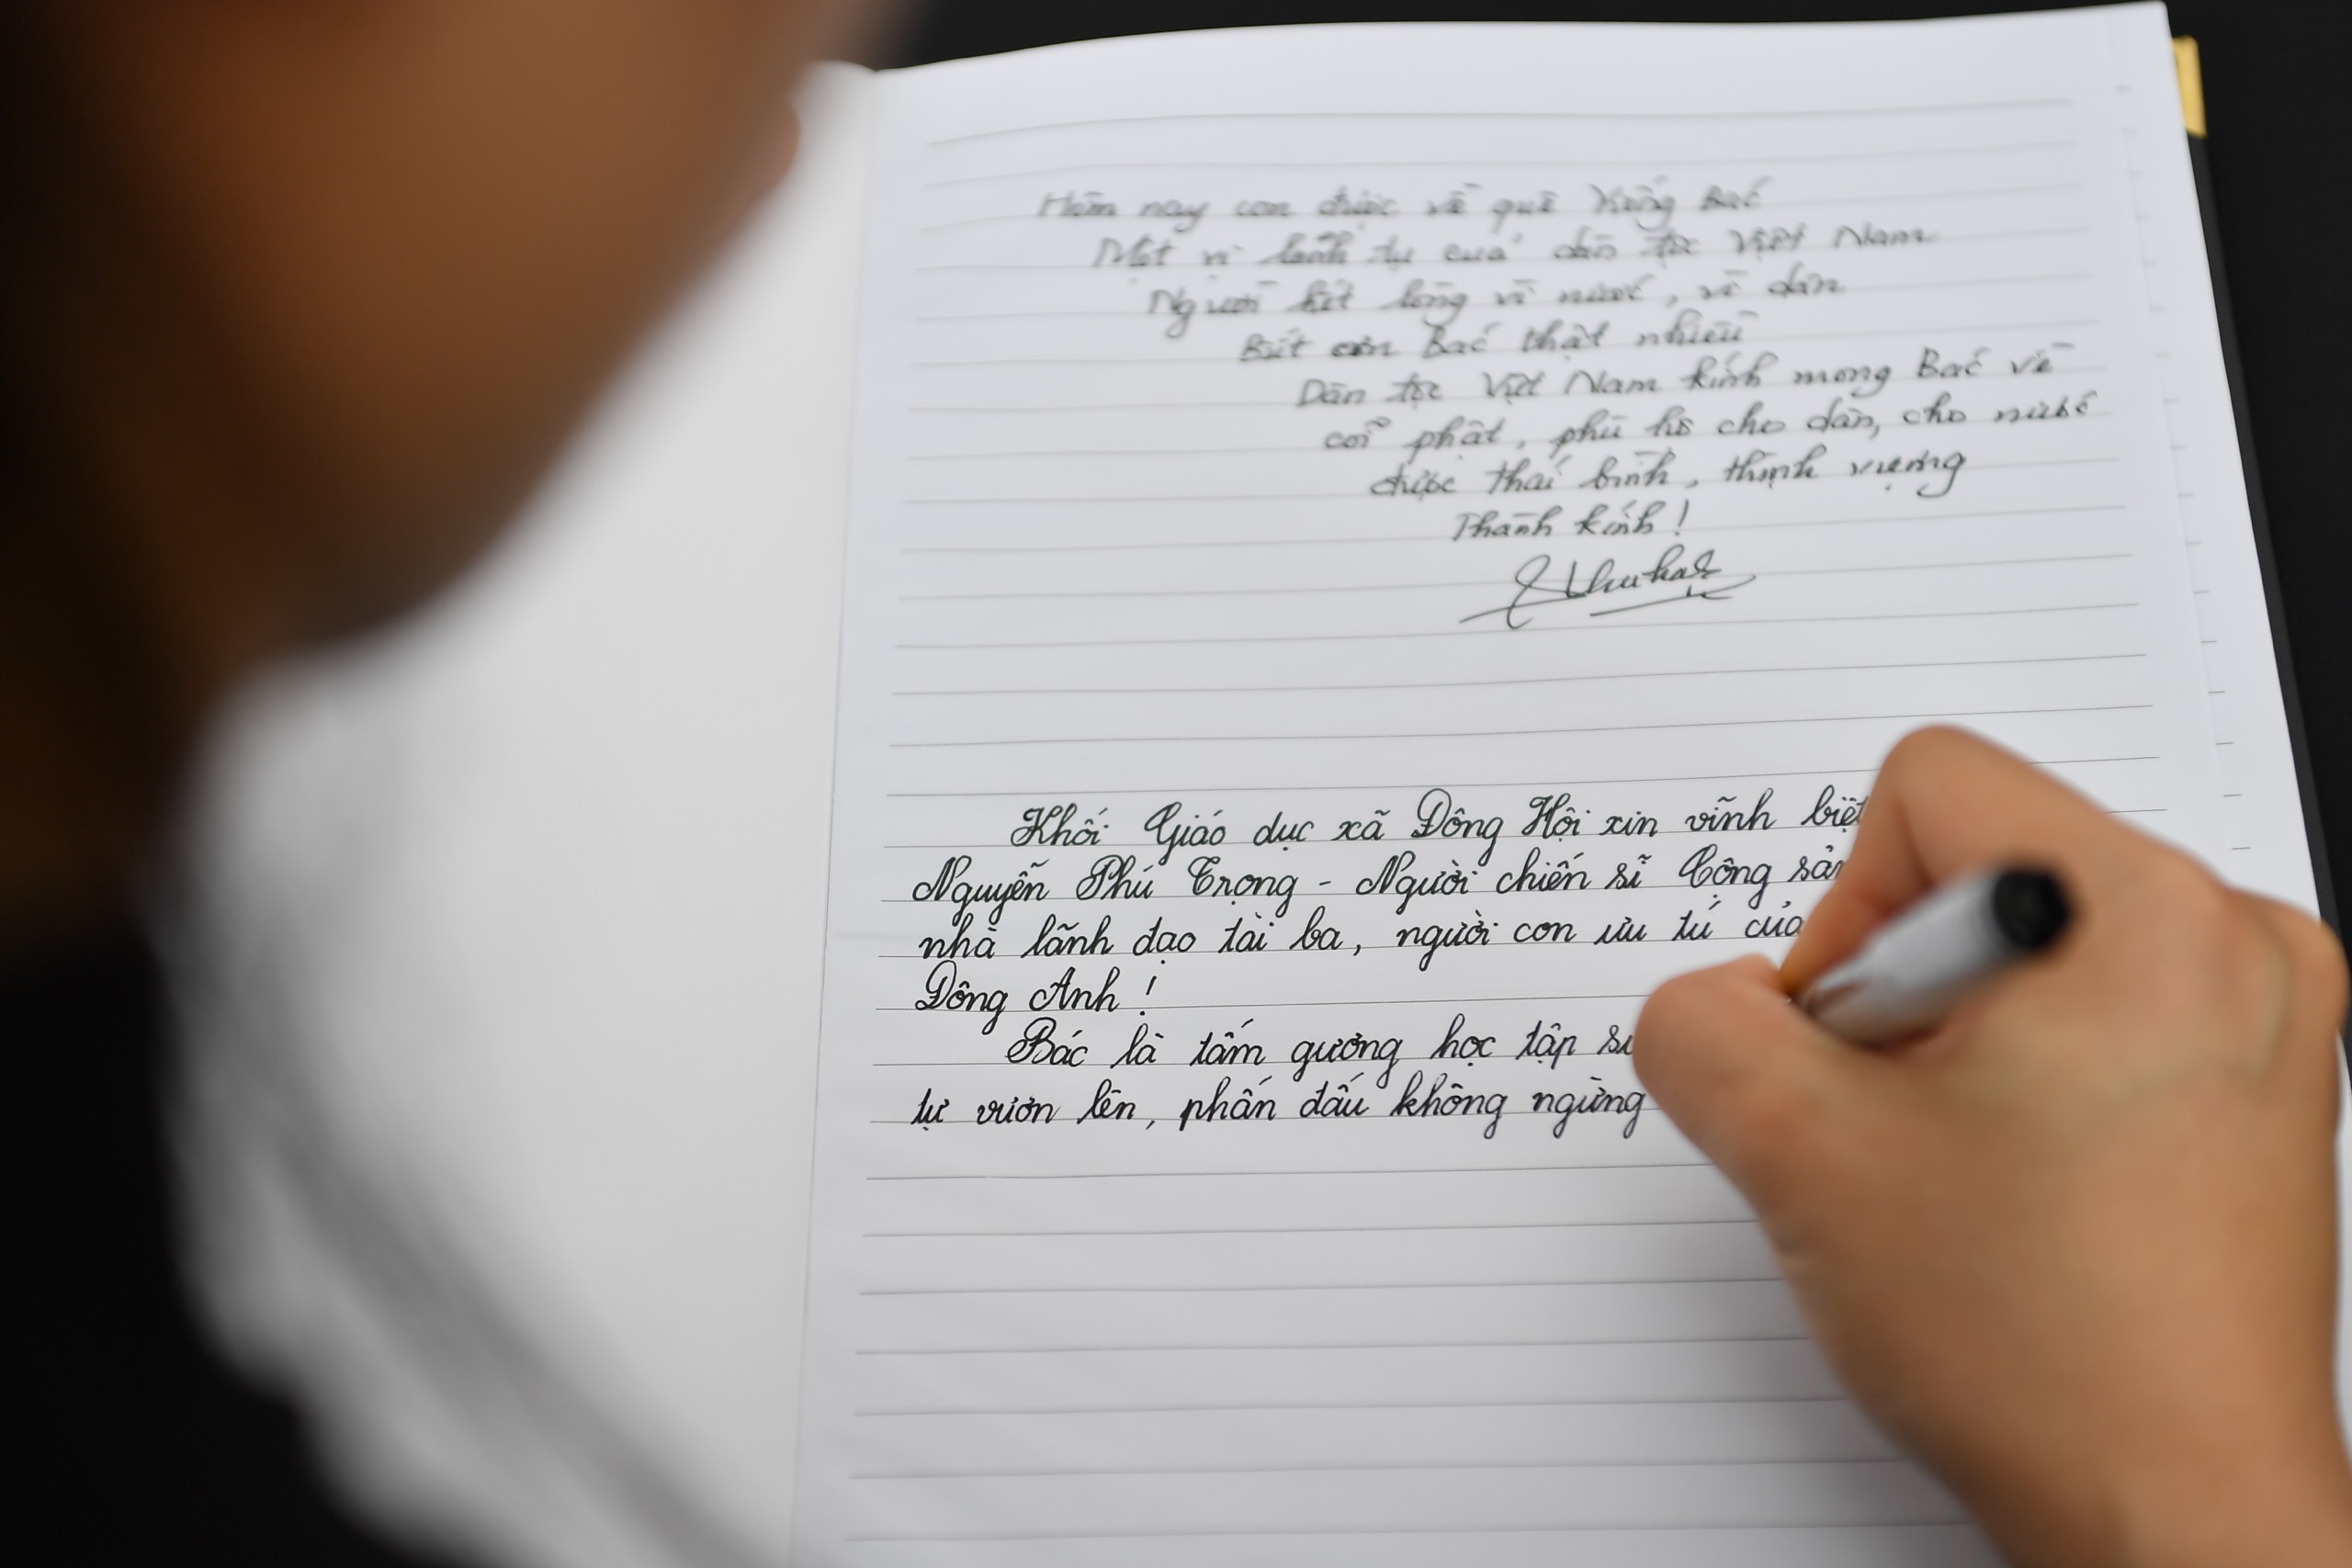 Hôm nay con được về quê Viếng Bác
Một vị lãnh tụ của dân tộc Việt Nam
Người hết lòng vì nước, vì dân
Biết ơn Bác thật nhiều
Dân tộc Việt Nam kính mong Bác về
cõi phật, phù hộ cho dân, cho nước
được thái bình, thịnh vượng
Thành kính!
Khối Giáo dục xã Đông Hội xin vĩnh biệt
Nguyễn Phú Trọng - Người chiến sĩ Cộng sản
nhà lãnh đạo tài ba, người con ưu tú của
Đông Anh!
Bác là tấm gương học tập
tự vươn lên, phấn đấu không ngừng